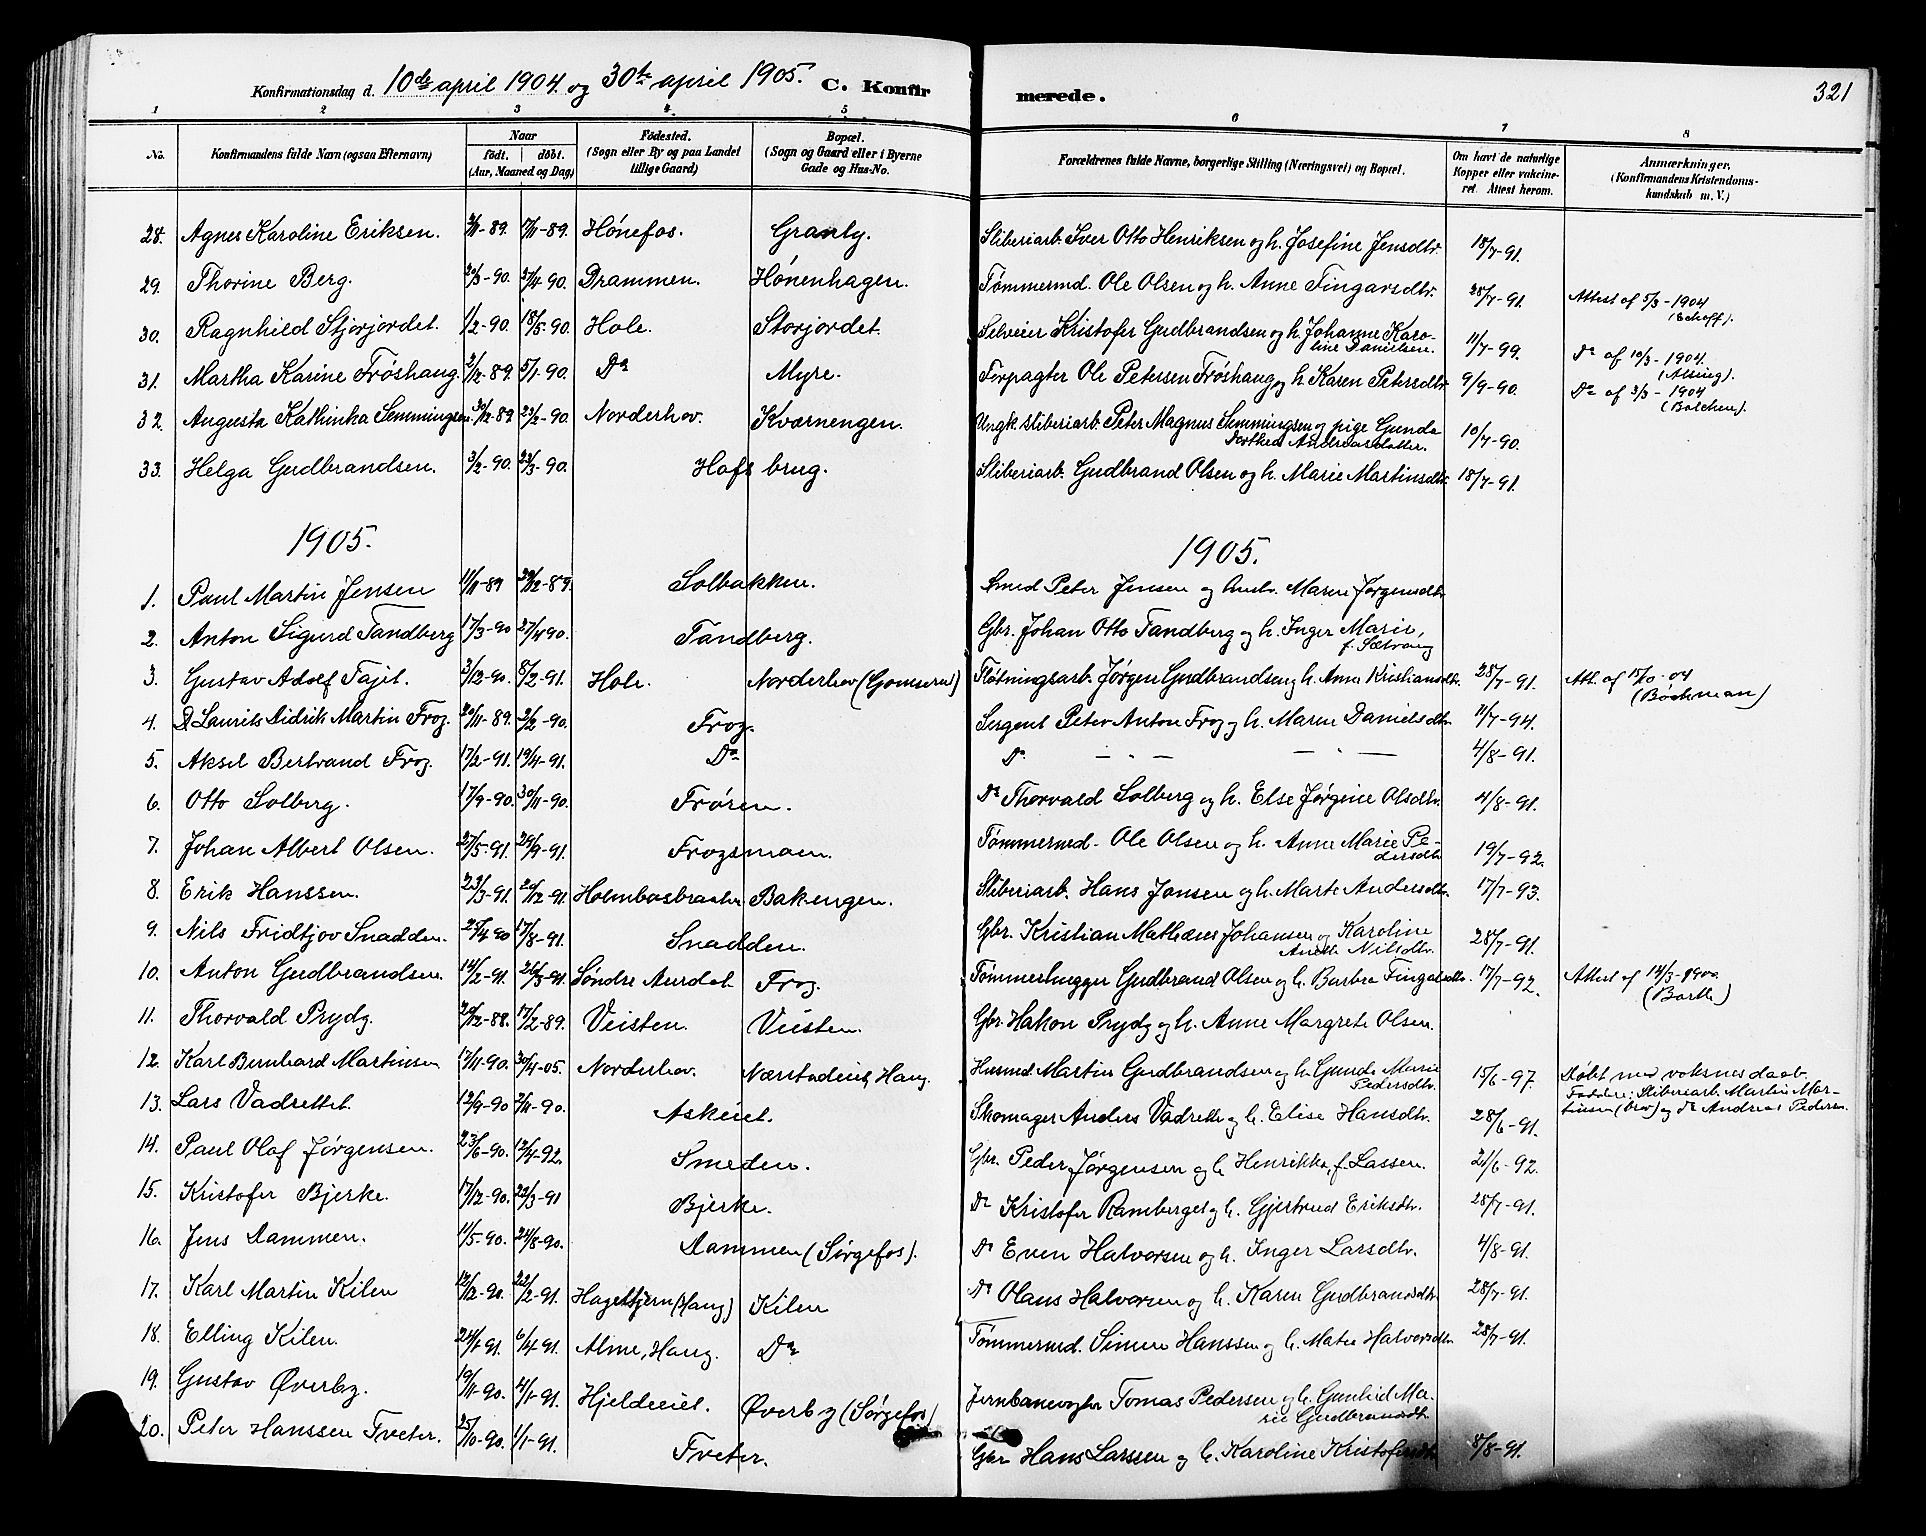 Konfirmationsdag d. 10de april 1904 og 30te april 1905. C. Konfir merede. 321
1 2 3 4 5 6 7 8
No. Konfirmandens fulde Navn (ogsaa Efternavn) Naar født. døbt. (Aar, Maaned og Dag) Fødested. (Sogn eller By og paa Landet tillige Gaard) Bopæl. (Sogn og Gaard eller i Byerne Gade og Hus-No. Forældrenes fulde Navne, borgerlige Stilling (Næringsvei) og Bopæl. Om havt de naturlige Kopper eller vakcineret. Attest herom. Anmærkninger. (Konfirmandens Kristendomskundskab m. V.)
28. Agnes Karoline Eriksen. -89. -89. Hønefos. Granly. Sliberiarb. Iver Otto Henriksen og h. Josefine Jensdtr. 18/7-91.
29. Thorine Berg. 20/3-90. 27/4-90. Drammen. Hønenhagen. Tømmermd. Ole Olsen og h. Anne Fingarsdtr. 28/7-91. Attest af 5/3-1904
30. Ragnhild Stjorjordet. 1/2-90. 18/5-90. Hole. Storjordet. Selveier Kristofer Gudbrandsen og h. Johanne Karoline Danielsen. 11/7-99. Do af 10/3-1904.
31. Martha Karine Frøshaug. 2/12-89. 5/1-90. Do Myre. Forpagter Ole Petersen Frøshaug og h. Karen Petersdtr. 9/9-90. Do af 3/3-1904 (Bolchen).
32. Augusta Kathinka Semmingsen. 30/12-89. 23/2-90. Norderhov. Kværnengen. Ungk. sliberiarb. Peter Magnus Semmingsen og pige Gunda Dorthea Andreasdatter. 10/7-90.
33. Helga Gudbrandsen. 3/2-90. 23/3-90. Hofsbrug. Sliberiarb. Gudbrand Olsen og h. Marie Martinsdtr. 18/7-91.
1905. 1905.
1. Paul Martin Jensen 11/11-89 29/12-89. Solbakken. Smed Peter Jensen og hustr. Maren Jørgensdtr.
2. Anton Sigurd Tandberg 17/3-90 27/4 90. Tandberg. Gbr. Johan Otto Tandberg og h. Inger Marie, f. Sætrang
3. Gustav Adolf Fajet. 3/12-90. 8/2-91. Hole. Norderhov (Gomserud) Fløtningsarb. Jørgen Gudbrandsen og h. Anne Kristiansdtr. 28/7-91. Att. af -04 (Böckman)
4. Laurits Didrik Martin Frog. 20/11-89. 2/2-90. Frog. Sergent Peter Anton Frog og h. Maren Danielsdtr. 11/7-94.
5. Aksel Bertrand Frog. 17/2-91. 19/4-91. Do Do — " — — " — 4/8-91.
6. Otto Solberg. 17/9-90. 30/11-90. Frøren. Do Thorvald Solberg og h. Else Jørgine Olsdtr. 4/8-91.
7. Johan Albert Olsen. 27/5-91. 20/9-91. Frogsmoen. Tømmermd. Ole Olsen og h. Anne Marie Pedersdtr. 19/7-92.
8. Erik Hanssen. 23/3-91. 20/12-91. Holmbosbraaten Bakengen. Sliberiarb. Hans Jonsen og h. Marte Andersdtr. 17/7-93.
9. Nils Fridtjov Snadden. 25/4 90 17/8-91. Snadden. Gbr. Kristian Mathæus Johansen og Karoline Nilsdtr. 28/7-91.
10. Anton Gudbrandsen. 14/2-91. 26/3-91. Søndre Aurdal. Frog. Tømmerhugger Gudbrand Olsen og h. Barbra Fingalsdtr. 17/7-92. Attest af 14/3-1900 (Barth)
11. Thorvald Prydz. 20/12-88. 17/2-89. Veisten. Veisten. Gbr. Hakon Prydz og h. Anne Margrete Olsen.
12. Karl Bernhard Martinsen 17/11-90. 30/4-05. Norderhov. Nærstadeiet, Haug. Husmd Martin Gudbrandsen og h. Gunda Marie Pedersdtr. 15/6-97. Døbt med voksnes daab. Faddere: Sliberiarb. Martin Martinsen (bror) og do Andreas Pedersen.
13. Lars Vadrettet. 12/9-90 2/11-90. Askeiet. Skomager Anders Vadrette og h. Elise Hansdtr. 28/6-91.
14. Paul Olaf Jørgensen. 23/6-90. 12/4-92. Smeden. Gbr. Peder Jørgensen og h. Henrikke, f. Lassen. 21/6-92.
15. Kristofer Bjerke. 17/12-90. 22/3-91 Bjerke. Do Kristofer Ramberget og h. Gjertrud Eriksdtr. 28/7-91.
16. Jens Dammen. 11/5-90. 24/8-90. Dammen (Sørgefos). Do Even Halvorsen og h. Inger Larsdtr. 4/8-91.
17. Karl Martin Kilen 12/12-90. 22/2-91. Hagetjern (Haug) Kilen Do Olaus Halvorsen og h. Karen Gudbrandsdtr. 28/7-91.
18. Elling Kilen. 24/1-91. 6/4 91. Alme, Haug. Do Tømmermd. Simen Hanssen og h. Mathea Halvorsdtr. 28/7-91.
19. Gustav Øverby. 19/11-90. 4/1-91. Hjeldeeiet. Øverby (Sørgefos) Jernbanevogter Tomas Pedersen og h. Gunhild Marie Gudbrandsdtr.
20. Peter Hanssen Tveter. 25/10-90. 1/1-91. Tveter. Gbr Hans Larssen og h. Karoline Kristofersdtr. 8/8-91.